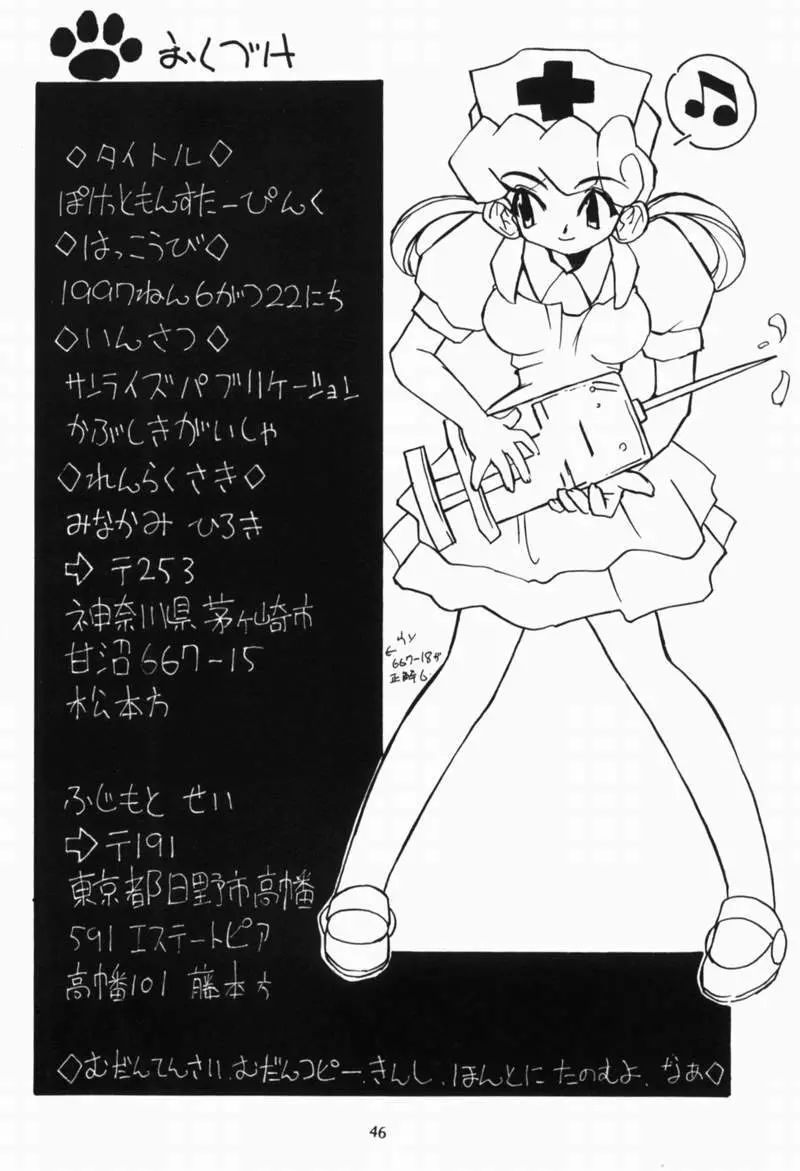 おくづけ
◇タイトル◇
ぽけっともんすたーぴんく
◇はっこうび◇
1997ねん6がつ22にち
◇いんさつ◇
サンライズパブリケーション
かぶしきがいしゃ
◇れんらくさき◇
みなかみ ひろき
⇨ 〒253
神奈川県茅ヶ崎市
甘沼667-15
松本方
ふじもと せい
⇨〒191
東京都日野市高幡
591 エステートピア
高幡101 藤本方
←
667-18
◇むだんてんさい、むだんコピー、きんし、ほんとに たのむよ、なぁ◇
46